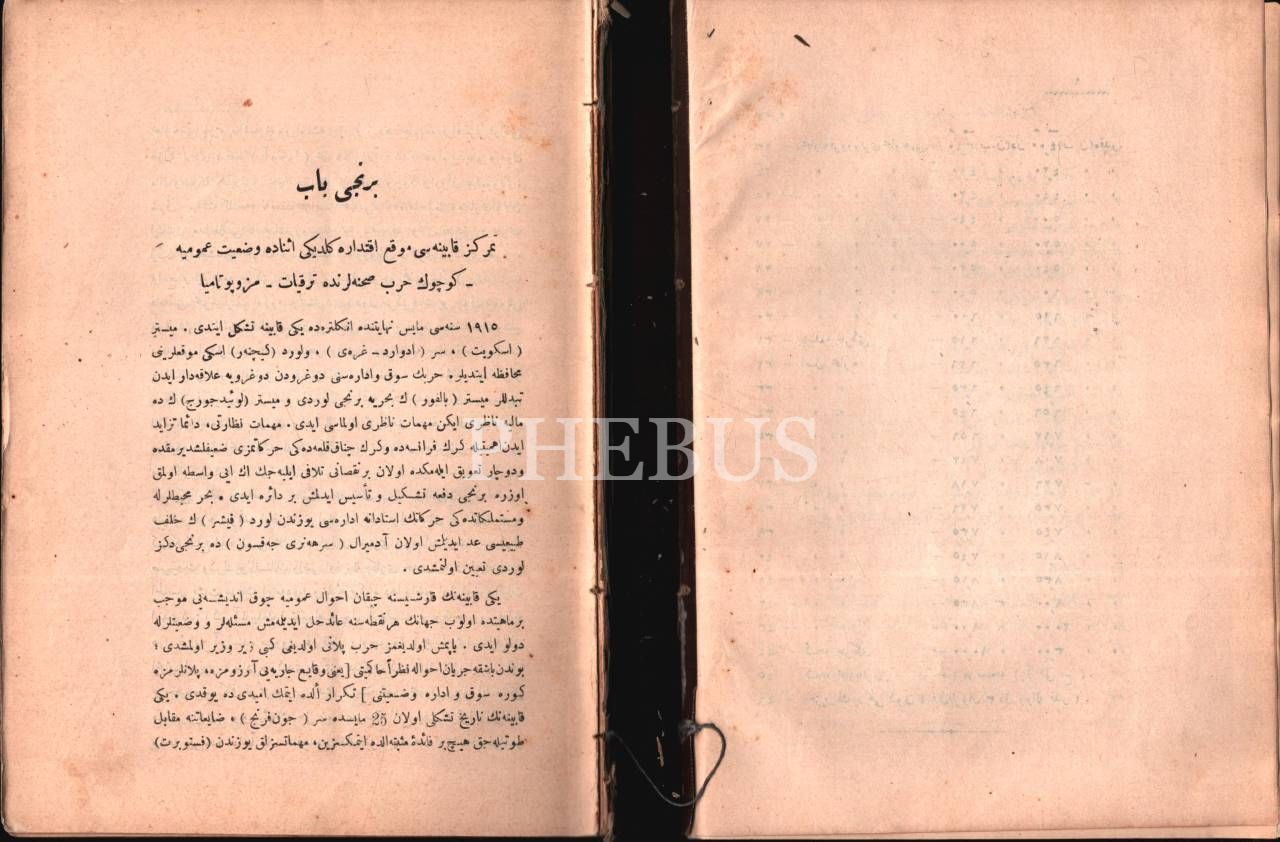 برنجی باب
تمركز قابینه‌سی موقع اقتداره كلدیكی اثناده وضعیت عمومیه –
– كوچوك حرب صحنه‌لرنده ترقیات – مزوپوتامیا
١٩١٥ سنه‌سی مایس نهایتنده انكلتره‌ده یكی قابینه تشكل ایتدی . میستر
( اسكویت ) ، سر ( ادوارد – غره‌ی ) ، ولورد (كیچنه‌ر) اسكی موقعلرینی
محافظه ایتدیلر. حربك سوق واداره‌سنی دوغرودن دوغرویه علاقه‌دار ایدن
تبدللر میستر ( بالفور ) ك بحریه برنجی لوردی و میستر (لوئیدجورج) ك ده
مالیه ناظری ایكن مهمات ناظری اولماسی ایدی . مهمات نظارتی، دائما تزاید
ایدن همتیله كرك فرانسه‌ده وكرك چناق‌قلعه‌ده‌كی حركاتمزی ضعیفلشدیرمقده
ودوچار تعویق ایله‌مكده اولان برنقصانی تلافی ایلیه‌جك اك ایی واسطه اولمق
اوزره برنجی دفعه تشكیل و تأسیس ایدلمش بر دائره ایدی . بحر محیطلرله
ومستملكاتده‌كی حركاتك استادانه اداره‌سی یوزندن لورد ( فیشر ) ك خلف
طبیعیسی عد ایدیلمش اولان آدمیرال ( سرهه‌نری جه‌قسون ) ده برنجی دكز
لوردی تعیین اولنمشدی .
یكی قابینه‌نك قارشیسنه چیقان احوال عمومیه چوق اندیشه‌یی موجب
برماهیتده اولوب جهانك هرنقطه‌سنه عائد حل ایدیله‌مش مسئله‌لر و وضعیتلرله
دولو ایدی . یاپمش اولدیغمز حرب پلانی اولدیغی كبی زیر وزبر اولمشدی ؛
بوندن باشقه جریان احواله نظراً حاكمیتی [یعنی وقایع جاریه‌یی آرزومزه، پلانلرمزه
كوره سوق و اداره وضعیتنی ] تكرار ألده ایتمك امیدی ده یوقدی . یكی
قابینه‌نك تاریخ تشكلی اولان 25 مایسده سر ( جون‌فرنچ ) ، ضایعاتنه مقابل
طوتیله‌جق هیچ بر فائدهٔ مثبته ألده ایتمكسزین، مهماتسزلق یوزندن (فستوبرت)
PHEBUS